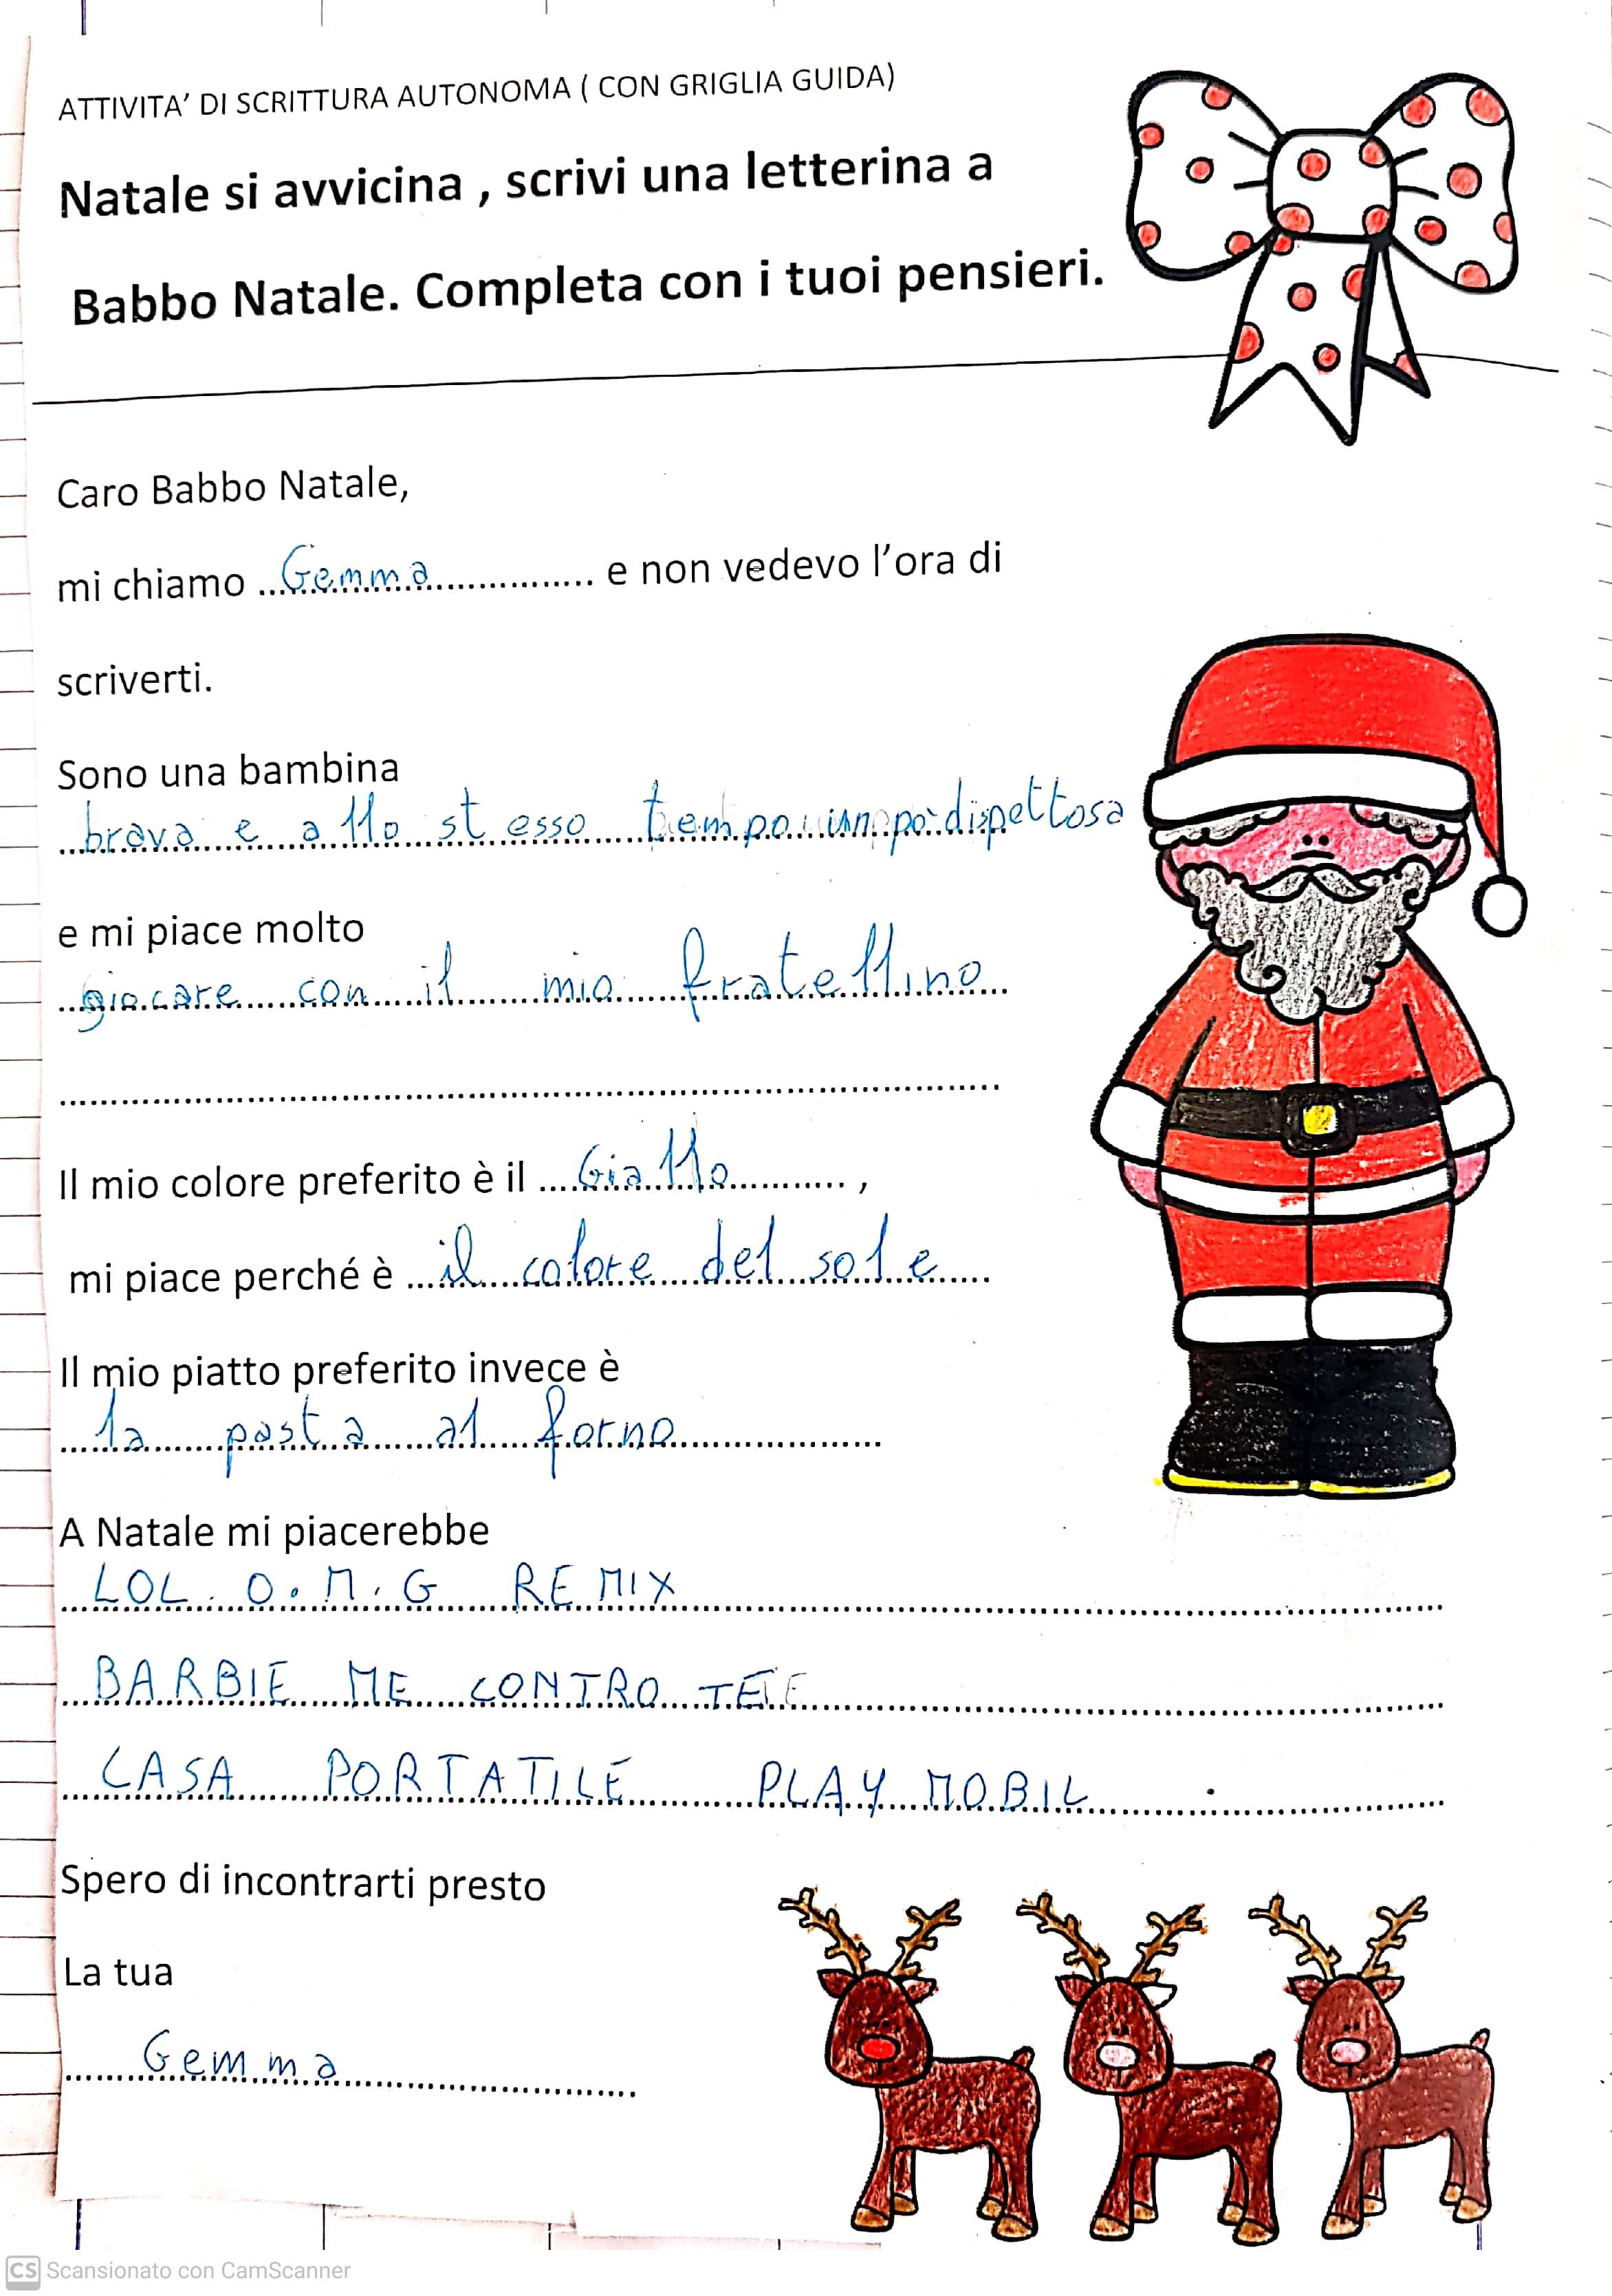 ATTIVITA' DI SCRITTURA AUTONOMA ( CON GRIGLIA GUIDA)
Natale si avvicina , scrivi una letterina a
Babbo Natale. Completa con i tuoi pensieri.
Caro Babbo Natale,
mi chiamo Gemma e non vedevo l'ora di
scriverti.
Sono una bambina
brava e allo stesso tempo un pò dispettosa
e mi piace molto
giocare con il mio fratellino
Il mio colore preferito è il Giallo ,
mi piace perché è il colore del sole
Il mio piatto preferito invece è
la pasta al forno
A Natale mi piacerebbe
LOL. O.M.G REMIX
BARBIE ME CONTRO TE
CASA PORTATILE PLAYMOBIL .
Spero di incontrarti presto
La tua
Gemma
CS Scansionato con CamScanner